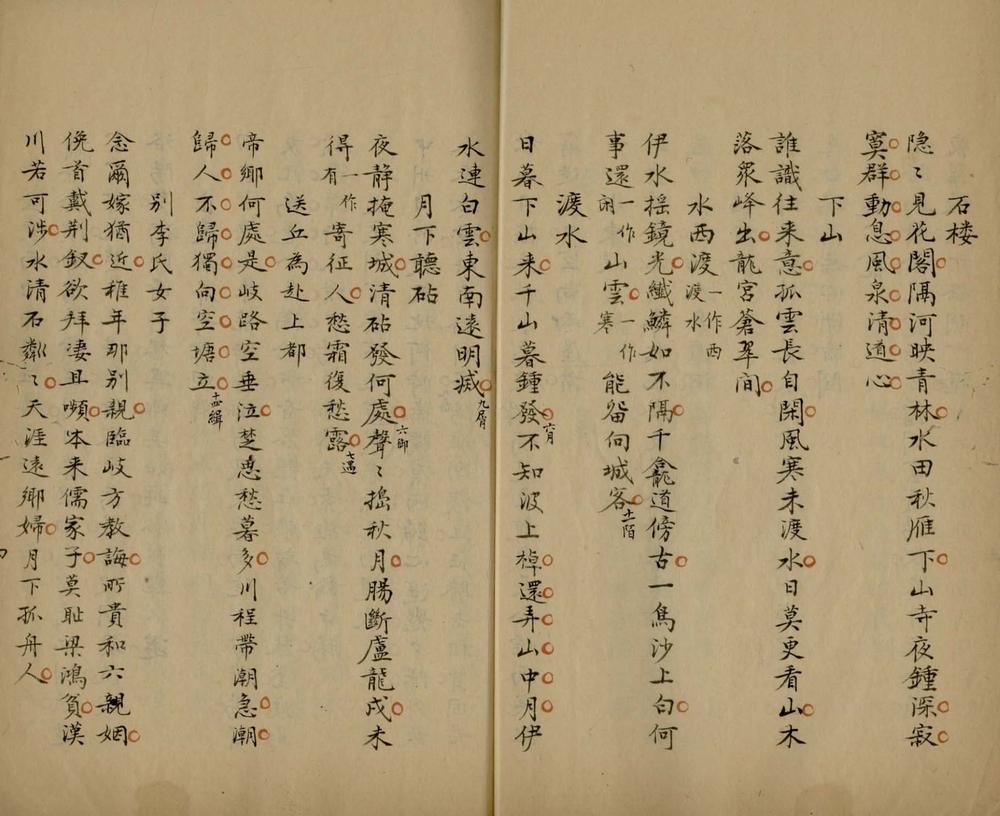 石楼
隐〻見花閣隔河映青林水田秋雁下山寺夜鍾深寂
寞群動息風泉清道心
下山
誰識往来意孤雲長自閑風寒未渡水日莫更看山木
落衆峰出龍宮蒼翠間
水西渡一作西渡水
伊水揺鏡光纎鱗如不隔千龕道傍古一鳥沙上白何
事還一作閑山雲一作寒能留向城客十一陌
渡水
日暮下山来千山暮鍾發六月不知波上棹還弄山中月伊
水連白雲東南遠明滅九屑
月下聽砧
夜静掩寒城清砧發何處六御聲〻搗秋月腸斷盧龍戍未
得一作有寄征人愁霜復愁露七遇
送丘為赴上都
帝鄉何處是岐路空垂泣楚思愁暮多川程帶潮急潮
歸人不歸獨向空塘立十四緝
別李氏女子
念爾嫁猶近稚年那別親臨岐方教誨所貴和六親姻
俛首戴荆釵欲拜凄且嚬本来儒家子莫耻梁鴻貧漢
川若可涉水清石粼〻天涯遠鄉婦月下孤舟人